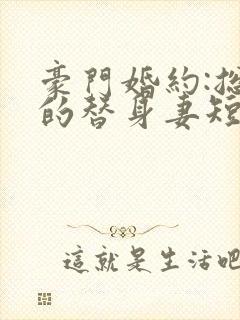 豪門婚約:
的替身妻短
這就是生活吧